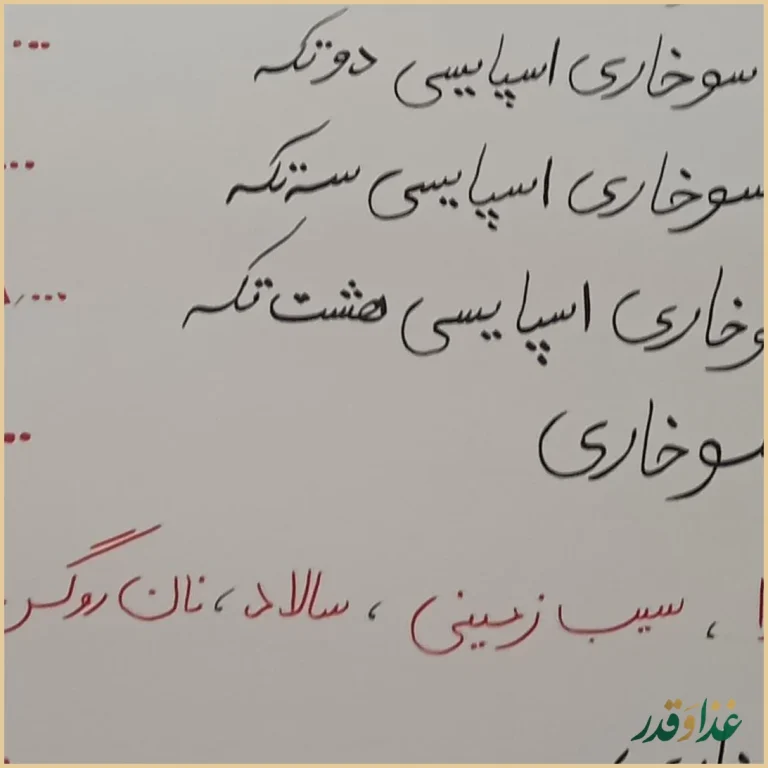 سوخاری اسپایسی دو تکه ...
سوخاری اسپایسی سه تکه ...
سوخاری اسپایسی هشت تکه ...
سوخاری
، سیب زمینی ، سالاد ، نان
غذا و قدر